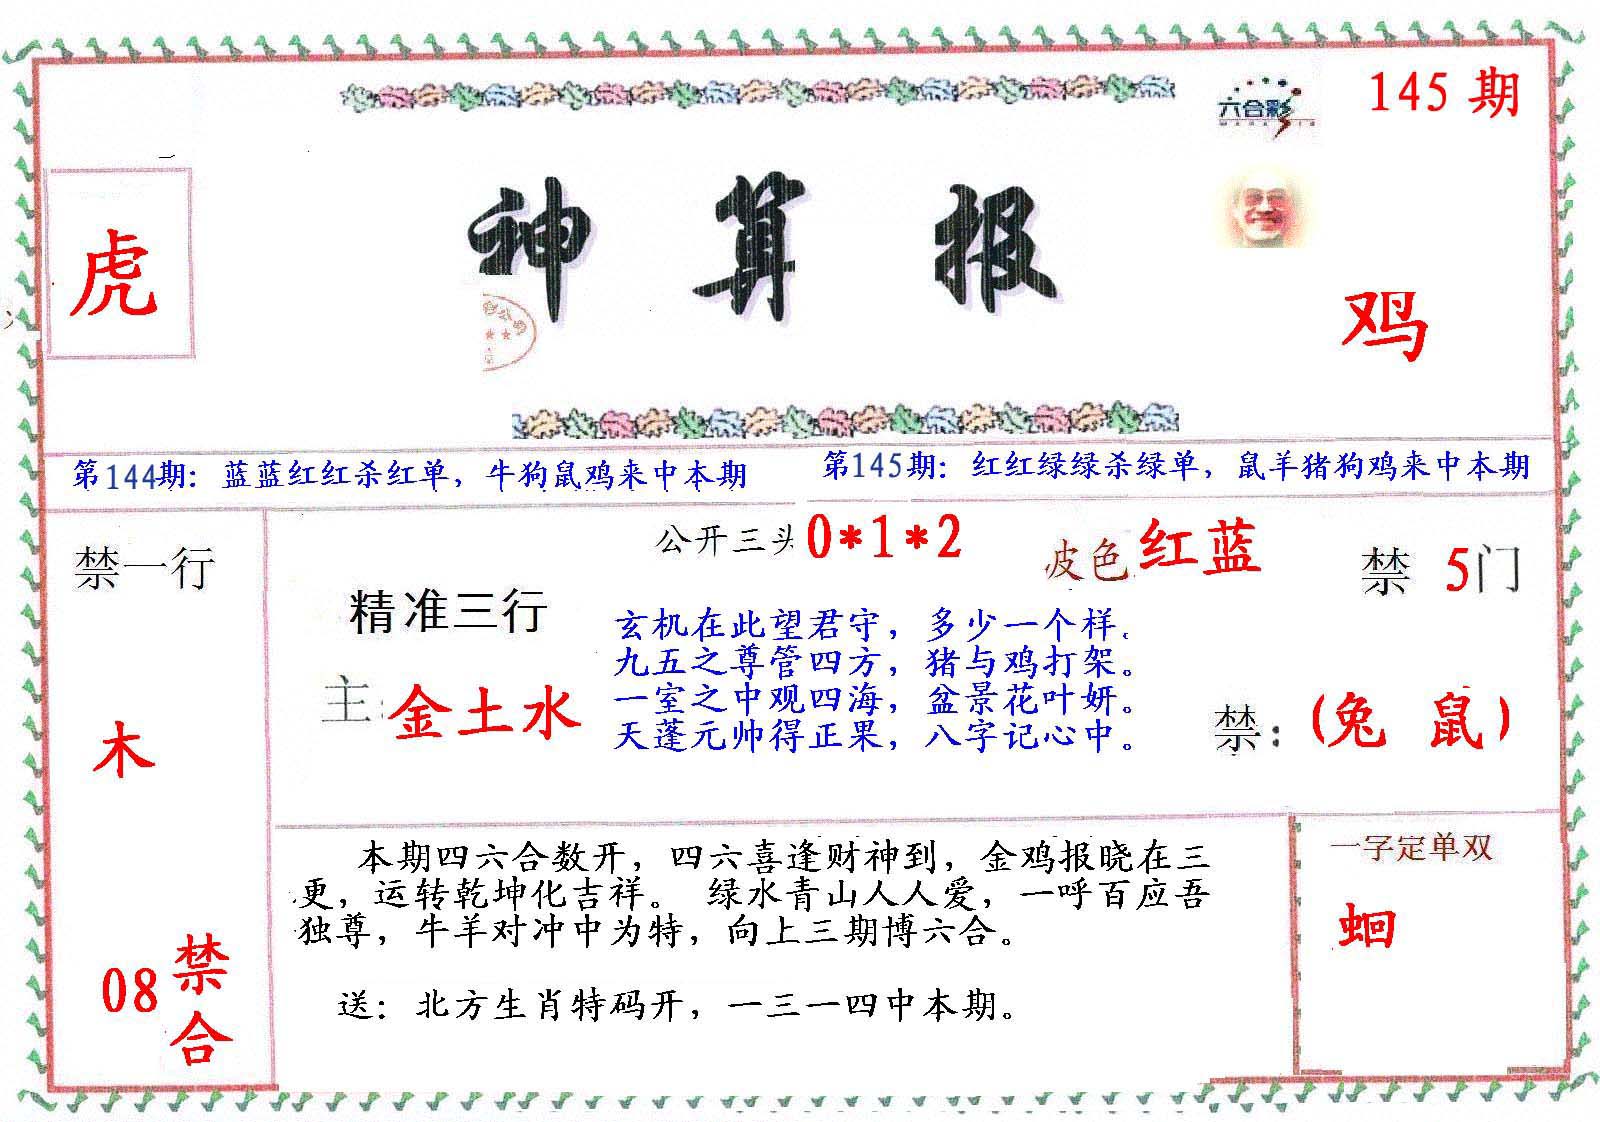 145 期
六合彩
神算报
虎
鸡
第144期：蓝蓝红红杀红单，牛狗鼠鸡来中本期
第145期：红红绿绿杀绿单，鼠羊猪狗鸡来中本期
禁一行
木
08 禁合
公开三头 0*1*2
波色 红蓝
禁 5门
精准三行
主：金土水
玄机在此望君守，多少一个样。
九五之尊管四方，猪与鸡打架。
一室之中观四海，盆景花叶妍。
天蓬元帅得正果，八字记心中。
禁：（兔 鼠）
本期四六合数开，四六喜逢财神到，金鸡报晓在三
更，运转乾坤化吉祥。 绿水青山人人爱，一呼百应吾
独尊，牛羊对冲中为特，向上三期博六合。
送：北方生肖特码开，一三一四中本期。
一字定单双
蛔